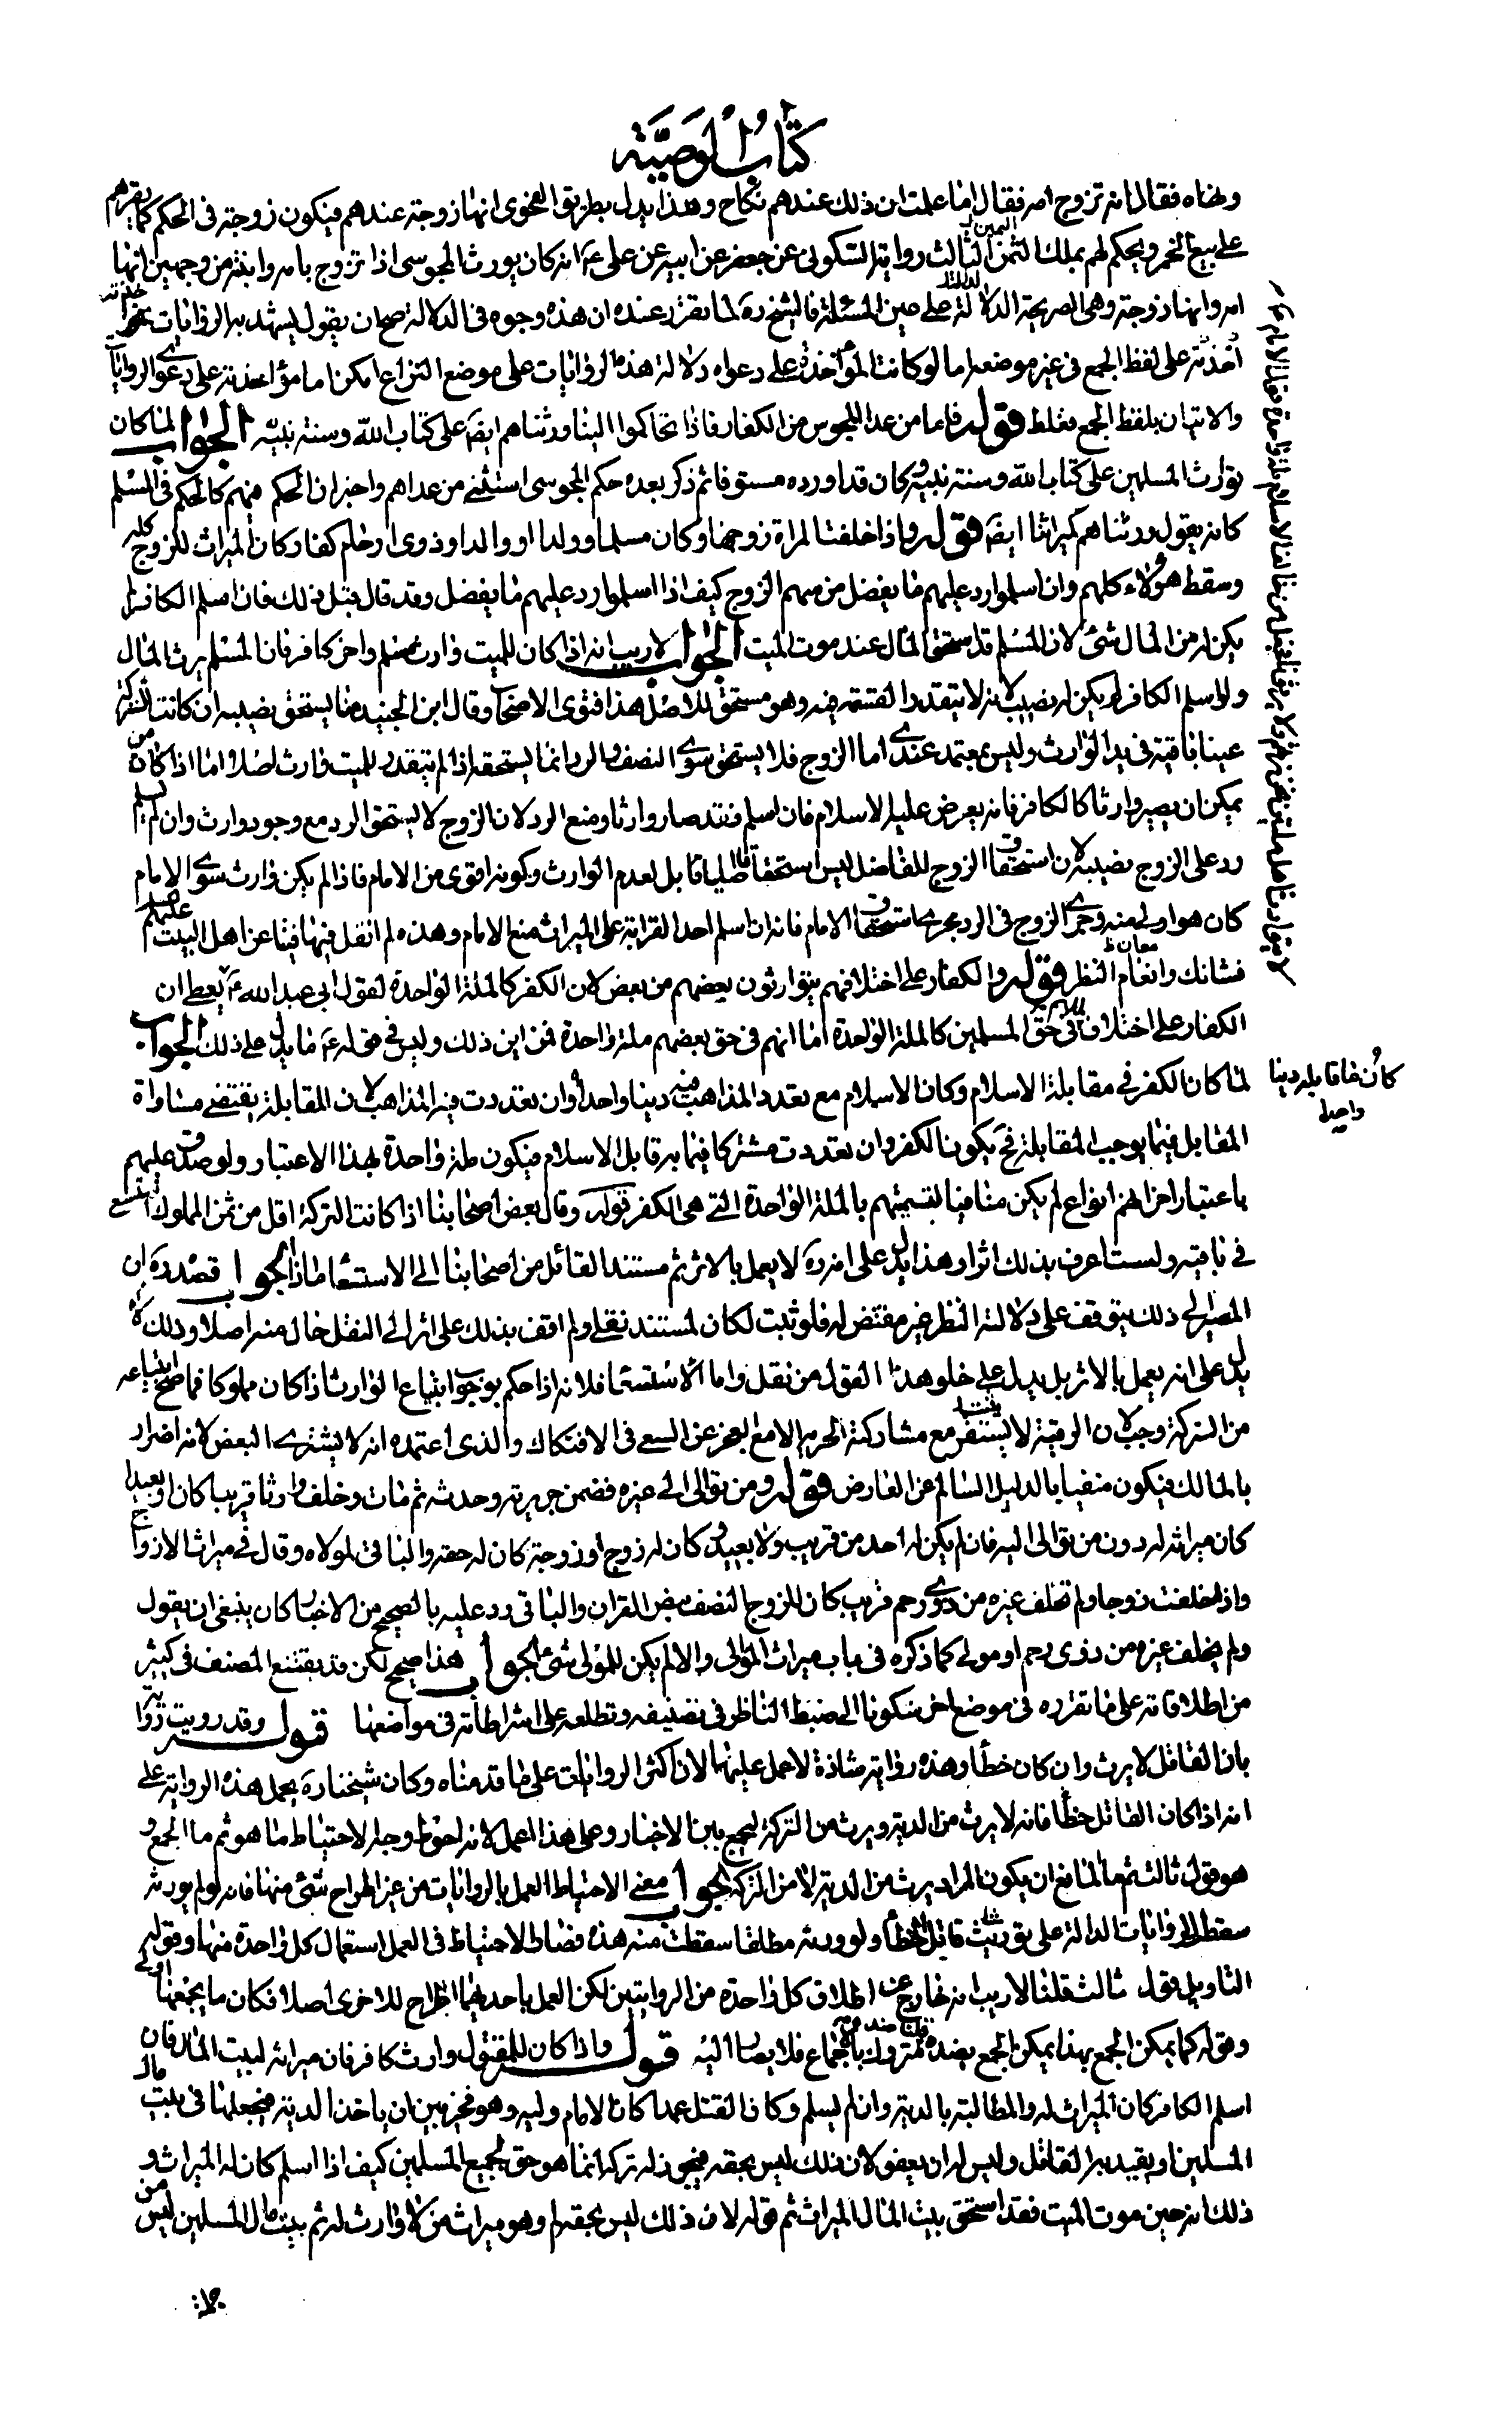 كتاب الوصية
ونهاه فقال انه تزوج امه فقال اما علمت ان ذلك عندهم نكاح وهذا يدل بطريق الفحوى انها زوجة عندهم فيكون زوجة في الحكم كما نقرهم
على بيع الخمر ويحكم لهم بملك الثمن الثالث رواية السكوني عن جعفر عن ابيه عن علي ع انه كان يورث المجوسي اذا تزوج بامه وابنته من وجهين انها
امه وانها زوجة وهي الصريحة الدلالة على عين المسئلة فالشيخ ره لما تقرر عنده ان هذه وجوه في الدلالة صح ان يقول يشهد به الروايات
اخذته على لفظ الجمع في غير موضعه اما لو كانت المؤاخذة على دعواه دلالة هذه الروايات على موضع النزاع امكن اما مؤاخذته على دعوى الروايات
والاتيان بلفظ الجمع فغلط قوله فاما من عدا المجوس من الكفار فاذا تحاكموا الينا ورثناهم ايضا على كتاب الله وسنة نبيه الجواب لما كان
توارث المسلمين على كتاب الله وسنة نبيه وكان قد اورده مستوفا ثم ذكر بعده حكم المجوسي استثنى من عداهم واخبر ان الحكم فيهم كالحكم في المسلم
كانه يقول ورثناهم كميراثنا ايضا قوله واذا خلفت المراة زوجها وكان مسلما وولدا او والدا او ذوي ارحام كفارا كان الميراث للزوج كله
وسقط هؤلاء كلهم وان اسلموا رد عليهم ما يفضل من سهم الزوج كيف اذا اسلموا رد عليهم ما يفضل وقد قال قبل ذلك فان اسلم الكافر لم
يكن له من المال شئ لان المسلم قد استحق المال عند موت الميت الجواب لا ريب انه اذا كان للميت وارث مسلم واخر كافر فان المسلم يرث المال
ولو اسلم الكافر لم يكن له نصيب لانه لا يتقدر القسمة فيه وهو مستحق للاصل هذا فتوى الاصحاب وقال ابن الجنيد منا يستحق نصيبه ان كانت التركة
عينا باقية في يد الوارث وليس بمعتمد عندي اما الزوج فلا يستحق سوى النصف والرد انما يستحقه اذا لم يتقدر للميت وارث اصلا اما اذا كان من
يمكن ان يصير وارثا كالكافر فانه يعرض عليه الاسلام فان اسلم فقد صار وارثا ومنع الرد لان الزوج لا يستحق الرد مع وجود وارث وان لم يسلم
رد على الزوج نصيبه لان استحقاق الزوج للفاضل ليس استحقاقا اصليا بل لعدم الوارث وكونه اقوى من الامام فاذا لم يكن وارث سوى الامام
كان هو اولى منه وجرى الزوج في الرد مجرى استحقاق الامام فانه ان اسلم احد القرابة على الميراث منع الامام وهذه لم انقل فيها فيئا عن اهل البيت عليهم
فشانك وانعام النظر قوله والكفار على اختلافهم يتوارثون بعضهم من بعض لان الكفر كالملة الواحدة لقول ابي عبد الله ع يعطي ان
الكفار على اختلافهم في حق المسلمين كالملة الواحدة اما انهم في حق بعضهم ملة واحدة فمن اين ذلك وليس في قوله ع ما يدل على ذلك الجواب
لما كان الكفر في مقابلة الاسلام وكان الاسلام مع تعدد المذاهب فيه دينا واحدا وان تعددت فيه المذاهب لان المقابلة يقتضي مساواة
كان ما قابله دينا واحدا
المقابل فيما يوجب المقابلة فح يكون الكفر وان تعددت مشتركا فيما به قابل الاسلام فيكون ملة واحدة لهذا الاعتبار ولو صدق عليهم
باعتبار اخر انهم انواع لم يكن منافيا لتسميتهم بالملة الواحدة التي هي الكفر قوله وقال بعض اصحابنا اذا كانت التركة اقل من ثمن المملوك استسعى
في باقيه ولست اعرف بذلك اثرا وهذا يدل على انه ره لا يعمل بالاثر ثم مستند القائل من اصحابنا الى الاستسعا ماذا الجواب قصده ره ان
المصير الى ذلك يتوقف على دلالة النظر غير مقتض له فلو ثبت لكان لمستند نقلي ولم اقف بذلك على اثر الى النقل خال منه اصلا وذلك لا
يدل على انه يعمل بالاثر بل يدل على خلو هذا القول من نقل واما الاستسعا فلانه اذا حكم بوجوب ابتياع الوارث اذا كان مملوكا فما صح ابتياعه
من التركة وجب لان الرقية لا يستقر مع مشاركة الحرية الا مع العجز عن السعي في الافتكاك والذي اعتمده انه لا يشترى البعض لانه اضرار
بالمالك فيكون منفيا بالدليل السالم عن المعارض قوله ومن توالى الى غيره فضمن جريرته وحدثه ثم مات وخلف وارثا قريبا كان او بعيدا
كان ميراثه له دون من توالى اليه فان لم يكن له احد من قريب ولا بعيد وكان له زوج او زوجة كان له حقه والباقي لمولاه وقال في ميراث الازواج
واذا خلفت زوجا ولم تخلف غيره من ذوي رحم قريب كان للزوج النصف بنص القران والباقي رد عليه بالصحيح من الاخبار كان ينبغي ان يقول
ولم يخلف غيره من ذوي رحم او مولى كما ذكره في باب ميراث الموالى والا لم يكن للمولى شئ الجواب هذا صحيح لكن قد يقتنع المصنف في كثير
من اطلاقاته على ما تقرره في موضع اخر سكونا الى ضبط الناظر في تصنيفه وتطلعه على اشراطاته في مواضعها قوله وقد رويت رواية
بان القاتل لا يرث وان كان خطأ وهذه رواية شاذة لا عمل عليها لان اكثر الروايات على ما قدمناه وكان شيخنا ره يحمل هذه الرواية على
انه اذا كان القاتل خطأ فانه لا يرث من الدية ويرث من التركة ليجمع بين الاخبار وعلى هذا اعمل لانه احوط وجه الاحتياط ما هو ثم ما الجمع و
هو قول ثالث ثم ما المانع ان يكون المراد يرث من الدية لا من التركة الجواب معنى الاحتياط العمل بالروايات من غير اطراح شئ منها فانه لو لم يورثه
سقط الروايات الدالة على توريث قاتل الخطأ ولو ورثه مطلقا سقطت منه هذه فصار الاحتياط في العمل استعمال كل واحدة منها وقوله
التاويل قول ثالث قلنا لا ريب انه خارج عن اطلاق كل واحدة من الروايتين لكن العمل باحديهما اطراح للاخرى اصلا فكان ما يجمعهما اولى
وقوله كما يمكن الجمع بهذا يمكن الجمع بضده متروك بالاجماع فلا يصار اليه قوله واذا كان للمقتول وارث كافر فان ميراثه لبيت المال فان
اسلم الكافر كان الميراث له والمطالبة بالدية وان لم يسلم وكان القتل عمدا كان الامام وليه وهو مخير بين ان ياخذ الدية فيجعلها في بيت مال
المسلمين او يقيد به القاتل وليس له ان يعفو لان ذلك ليس بحقه فيجوز له تركه انما هو حق لجميع المسلمين كيف اذا اسلم كان له الميراث و
ذلك انه حين موت الميت فقد استحق بيت المال الميراث ثم قوله لان ذلك ليس بحقه لم وهو ميراث من لا وارث له ثم بيت مال المسلمين ليس من